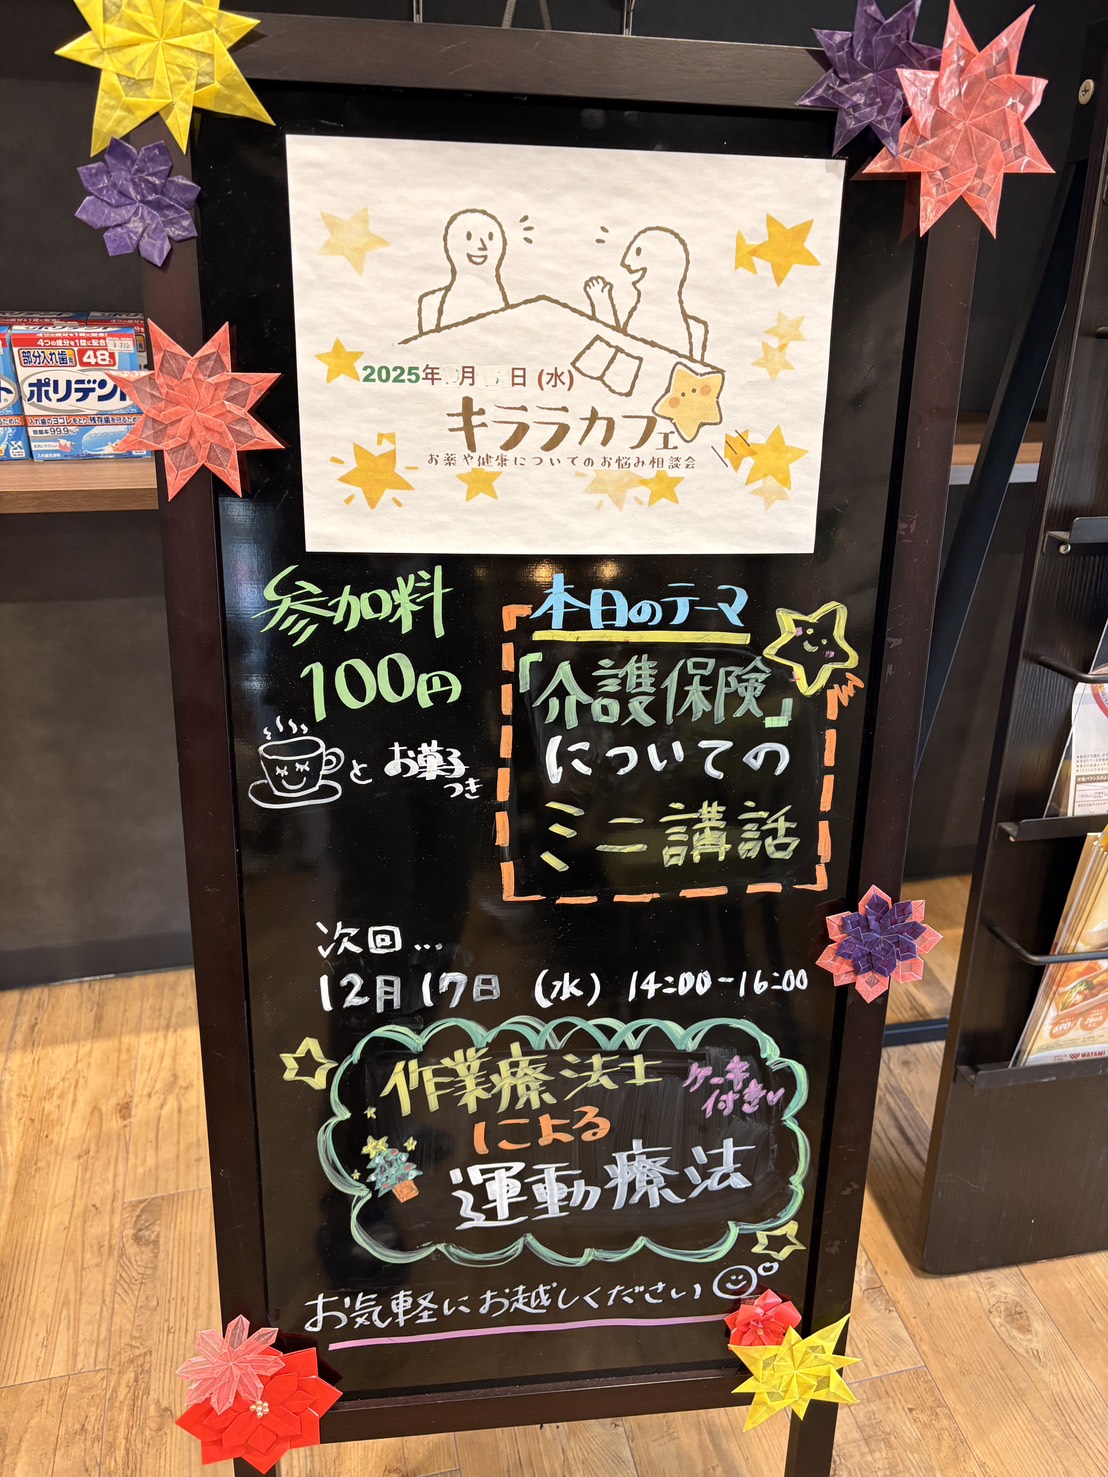 2025年 月 日(水)
キララカフェ
お薬や健康についてのお悩み相談会
参加料
100円
と お菓子つき
本日のテーマ
「介護保険」
についての
ミニ講話
次回...
12月17日 (水) 14:00-16:00
作業療法士
による
運動療法
ケーキ
付き
お気軽にお越しください
部分入れ歯用 48
ポリデント
4つの成分を1錠に配合
除菌率99.9%
WATAMI